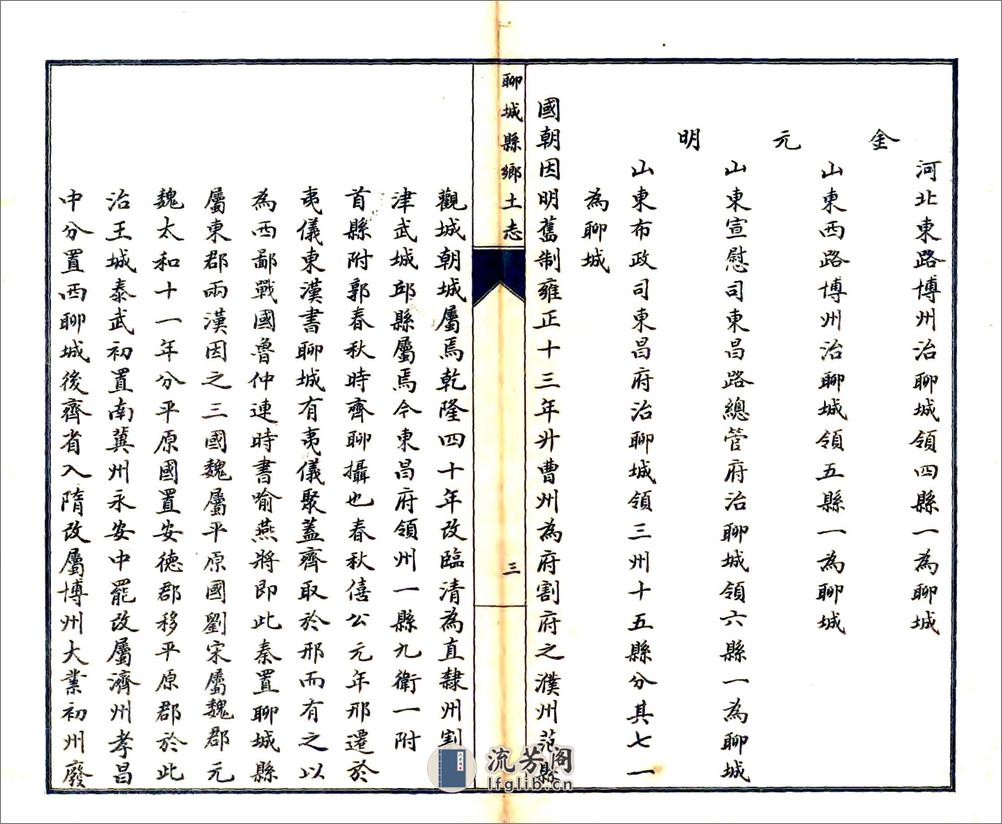 河北東路博州治聊城領四縣一為聊城
金
山東西路博州治聊城領五縣一為聊城
元
山東宣慰司東昌路總管府治聊城領六縣一為聊城
明
山東布政司東昌府治聊城領三州十五縣分其七一
為聊城
國朝因明舊制雍正十三年升曹州為府割府之濮州范縣
聊城縣鄉土志
三
觀城朝城屬焉乾隆四十年改臨清為直隸州割
津武城邱縣屬焉今東昌府領州一縣九衛一附
首縣附郭春秋時齊聊攝也春秋僖公元年邢遷於
夷儀東漢書聊城有夷儀聚蓋齊取於邢而有之以
為西鄙戰國魯仲連時書喻燕將即此秦置聊城縣
屬東郡兩漢因之三國魏屬平原國劉宋屬魏郡元
魏太和十一年分平原國置安德郡移平原郡於此
治王城泰武初置南冀州永安中罷改屬濟州孝昌
中分置西聊城後齊省入隋改屬博州大業初州廢
流芳阁
lfglib.cn